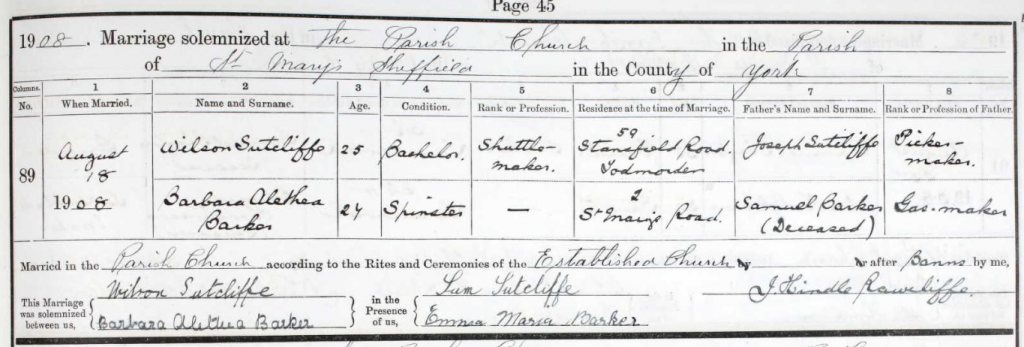 Page 45
1908. Marriage solemnized at The Parish Church in the Parish
of St Mary's Sheffield in the County of York
Columns. 1 2 3 4 5 6 7 8
No. When Married. Name and Surname. Age. Condition. Rank or Profession. Residence at the time of Marriage. Father's Name and Surname. Rank or Profession of Father.
89 August 18 1908 Wilson Sutcliffe 25 Bachelor. Shuttle-maker. 59 Stansfield Road. Todmorden Joseph Sutcliffe Picker-maker.
Barbara Alethea Barker 24 Spinster — 2 St Mary's Road. Samuel Barker (Deceased) Gas-maker
Married in the Parish Church according to the Rites and Ceremonies of the Established Church by or after Banns by me,
This Marriage was solemnized between us, Wilson Sutcliffe in the Presence of us, Sutcliffe J. Hindle
Barbara Alethea Barker Emma Maria Barker